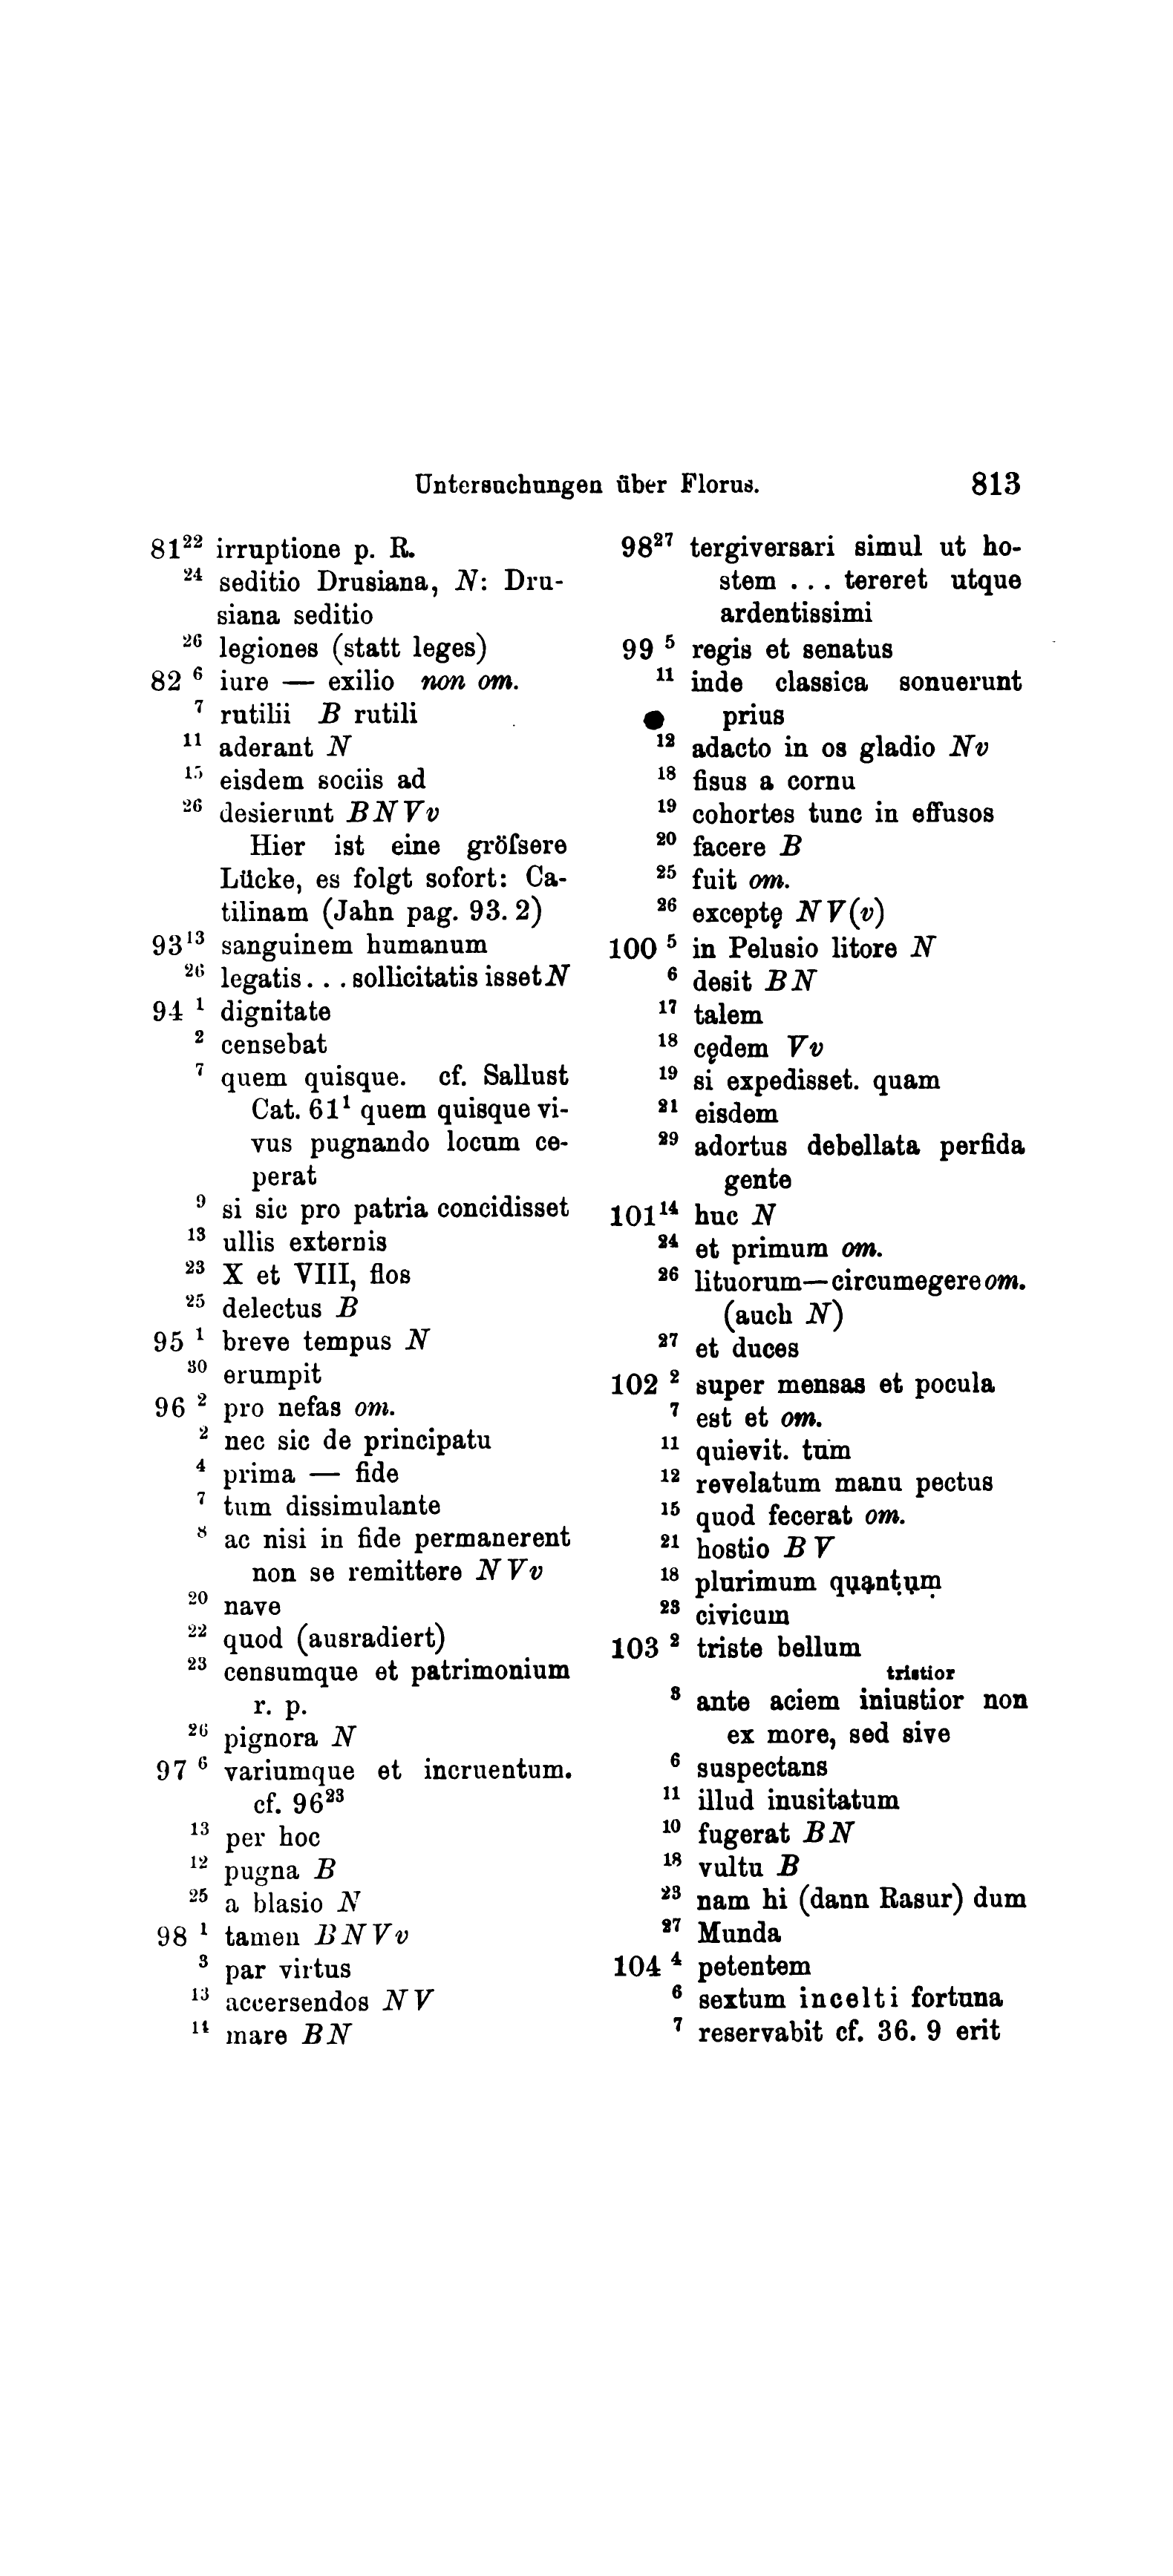 Untersuchungen über Florus. 813
81²² irruptione p. R.
²⁴ seditio Drusiana, N: Dru-
siana seditio
²⁶ legiones (statt leges)
82 ⁶ iure — exilio non om.
⁷ rutilii B rutili
¹¹ aderant N
¹⁵ eisdem sociis ad
²⁶ desierunt B N V v
Hier ist eine gröfsere
Lücke, es folgt sofort: Ca-
tilinam (Jahn pag. 93. 2)
93¹³ sanguinem humanum
²⁶ legatis . . . sollicitatis isset N
94 ¹ dignitate
² censebat
⁷ quem quisque. cf. Sallust
Cat. 61¹ quem quisque vi-
vus pugnando locum ce-
perat
⁹ si sic pro patria concidisset
¹³ ullis externis
²³ X et VIII, flos
²⁵ delectus B
95 ¹ breve tempus N
³⁰ erumpit
96 ² pro nefas om.
² nec sic de principatu
⁴ prima — fide
⁷ tum dissimulante
⁸ ac nisi in fide permanerent
non se remittere N V v
²⁰ nave
²² quod (ausradiert)
²³ censumque et patrimonium
r. p.
²⁶ pignora N
97 ⁶ variumque et incruentum.
cf. 96²³
¹³ per hoc
¹² pugna B
²⁵ a blasio N
98 ¹ tamen B N V v
³ par virtus
¹³ accersendos N V
¹⁴ mare B N
98²⁷ tergiversari simul ut ho-
stem . . . tereret utque
ardentissimi
99 ⁵ regis et senatus
¹¹ inde classica sonuerunt
prius
¹² adacto in os gladio Nv
¹⁸ fisus a cornu
¹⁹ cohortes tunc in effusos
²⁰ facere B
²⁵ fuit om.
²⁶ exceptę N V(v)
100 ⁵ in Pelusio litore N
⁶ desit B N
¹⁷ talem
¹⁸ cędem V v
¹⁹ si expedisset. quam
²¹ eisdem
²⁹ adortus debellata perfida
gente
101¹⁴ huc N
²⁴ et primum om.
²⁶ lituorum—circumegere om.
(auch N)
²⁷ et duces
102 ² super mensas et pocula
⁷ est et om.
¹¹ quievit. tum
¹² revelatum manu pectus
¹⁵ quod fecerat om.
²¹ hostio B V
¹⁸ plurimum qụạnṭụṃ
²³ civicum
103 ² triste bellum
tristior
³ ante aciem iniustior non
ex more, sed sive
⁶ suspectans
¹¹ illud inusitatum
¹⁰ fugerat B N
¹⁸ vultu B
²³ nam hi (dann Rasur) dum
²⁷ Munda
104 ⁴ petentem
⁶ sextum incelti fortuna
⁷ reservabit cf. 36. 9 erit